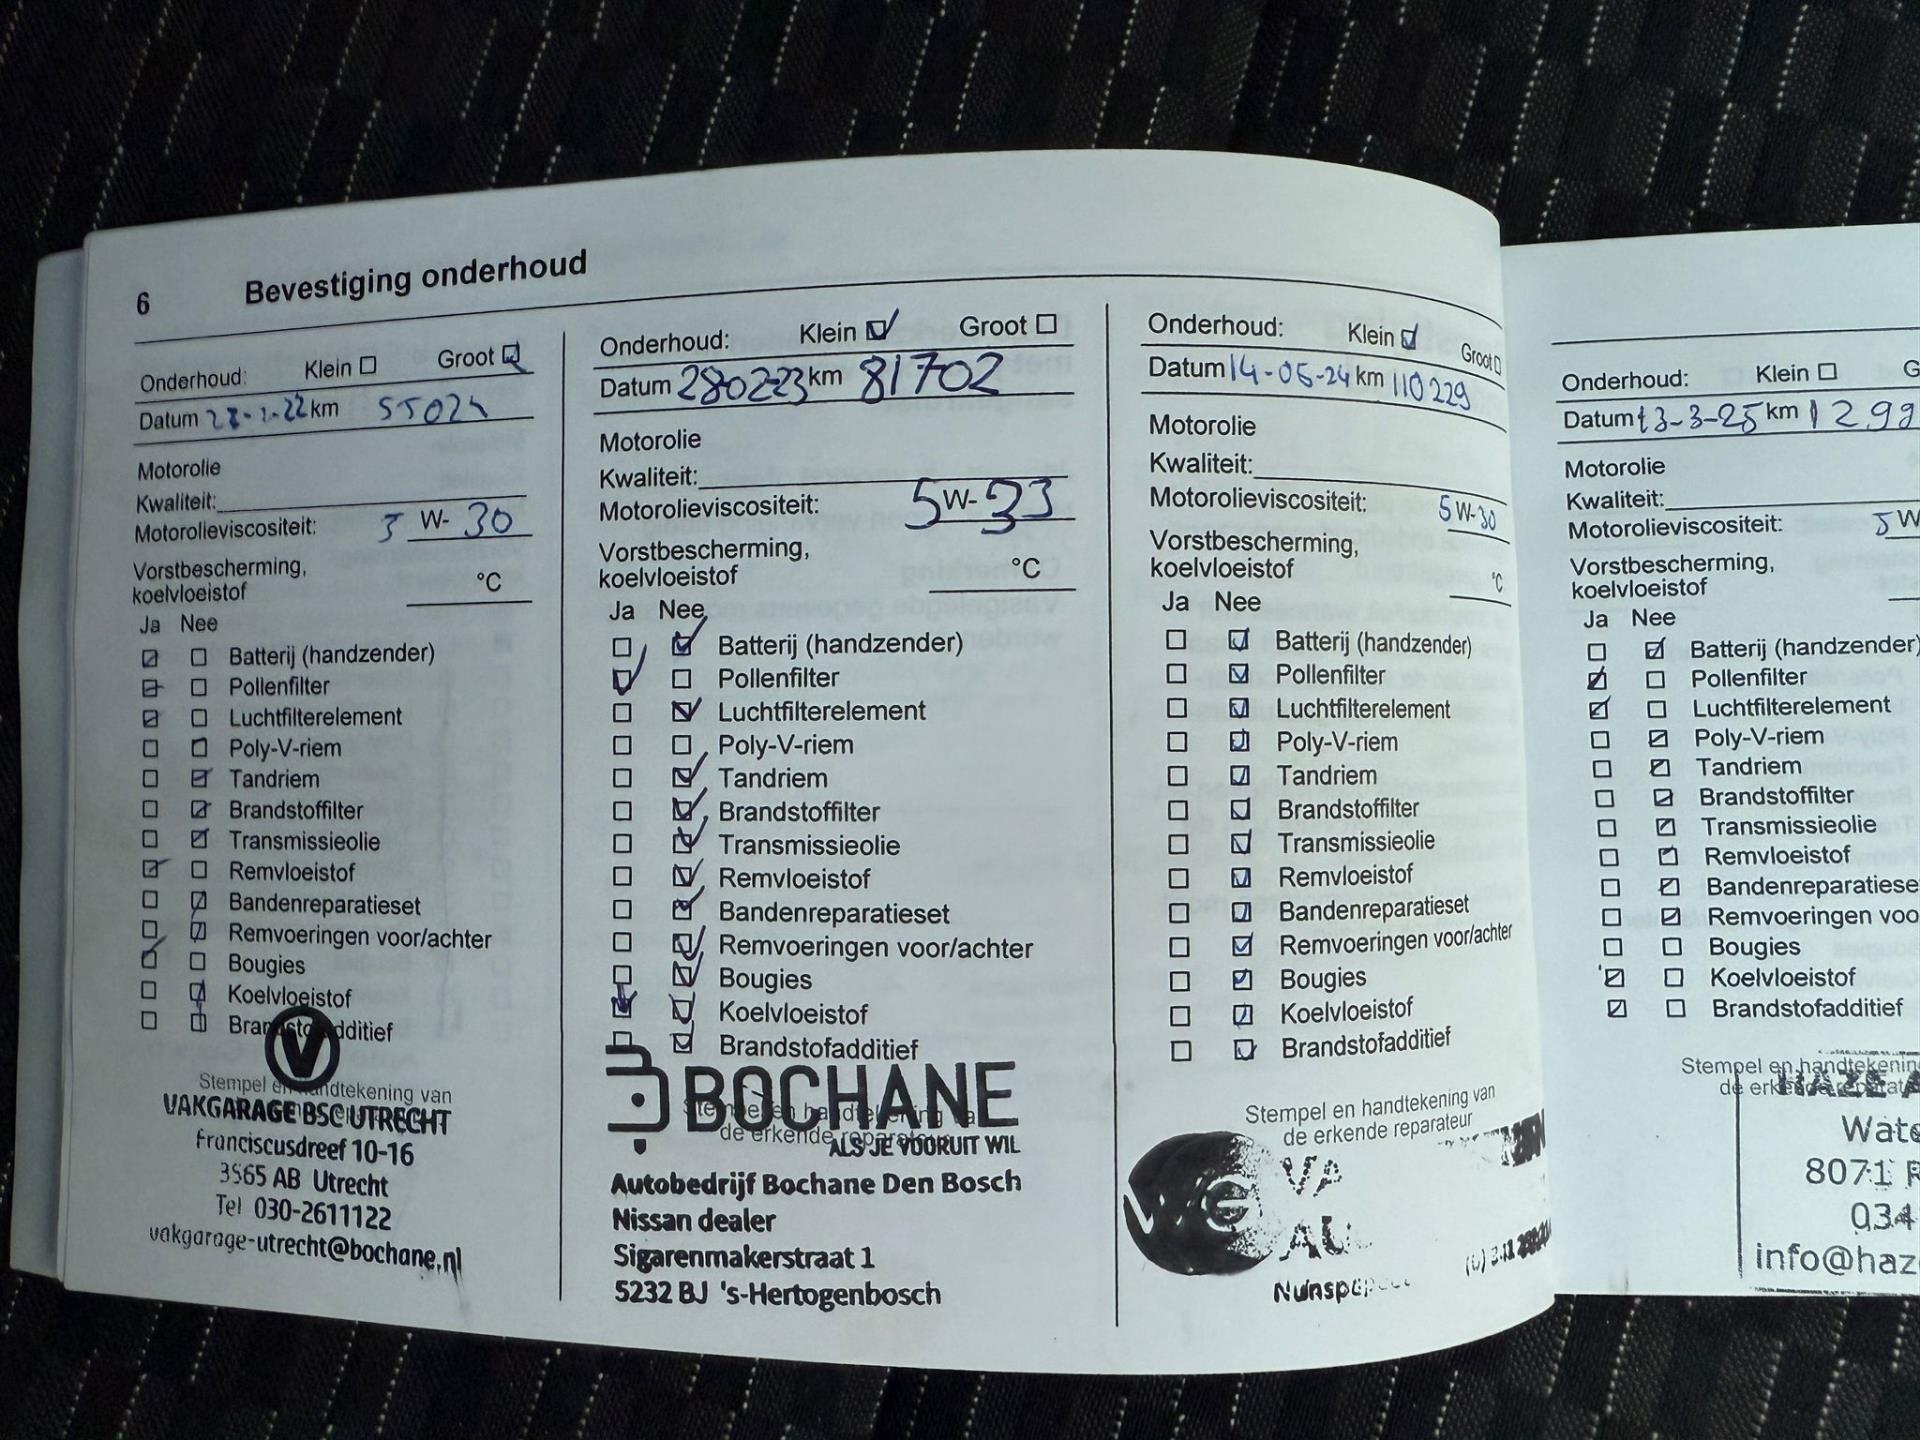 6 Bevestiging onderhoud
Onderhoud: Klein Groot
Datum km
Motorolie
Kwaliteit:
Motorolieviscositeit: 5 W- 30
Vorstbescherming,
koelvloeistof °C
Ja Nee
Batterij (handzender)
Pollenfilter
Luchtfilterelement
Poly-V-riem
Tandriem
Brandstoffilter
Transmissieolie
Remvloeistof
Bandenreparatieset
Remvoeringen voor/achter
Bougies
Koelvloeistof
Brandstofadditief
Stempel en handtekening van
VAKGARAGE BSC UTRECHT
Franciscusdreef 10-16
3565 AB Utrecht
Tel 030-2611122
vakgarage-utrecht@bochane.nl
Onderhoud: Klein Groot
Datum 280223 km 81702
Motorolie
Kwaliteit:
Motorolieviscositeit: 5 W-
Vorstbescherming,
koelvloeistof °C
Ja Nee
Batterij (handzender)
Pollenfilter
Luchtfilterelement
Poly-V-riem
Tandriem
Brandstoffilter
Transmissieolie
Remvloeistof
Bandenreparatieset
Remvoeringen voor/achter
Bougies
Koelvloeistof
Brandstofadditief
BOCHANE
Stempel en handtekening van
de erkende reparateur
ALS JE VOORUIT WIL
Autobedrijf Bochane Den Bosch
Nissan dealer
Sigarenmakerstraat 1
5232 BJ 's-Hertogenbosch
Onderhoud: Klein Groot
Datum 14-05-24 km 110229
Motorolie
Kwaliteit:
Motorolieviscositeit: 5 W-30
Vorstbescherming,
koelvloeistof °C
Ja Nee
Batterij (handzender)
Pollenfilter
Luchtfilterelement
Poly-V-riem
Tandriem
Brandstoffilter
Transmissieolie
Remvloeistof
Bandenreparatieset
Remvoeringen voor/achter
Bougies
Koelvloeistof
Brandstofadditief
Stempel en handtekening van
de erkende reparateur
Onderhoud: Klein G
Datum 13-3-25 km 1299
Motorolie
Kwaliteit:
Motorolieviscositeit: 5 W
Vorstbescherming,
koelvloeistof
Ja Nee
Batterij (handzender)
Pollenfilter
Luchtfilterelement
Poly-V-riem
Tandriem
Brandstoffilter
Transmissieolie
Remvloeistof
Bandenreparatieset
Remvoeringen voo
Bougies
Koelvloeistof
Brandstofadditief
Stempel en handtekening
de erkende reparat
HAZE A
Wate
8071 R
034
info@haze